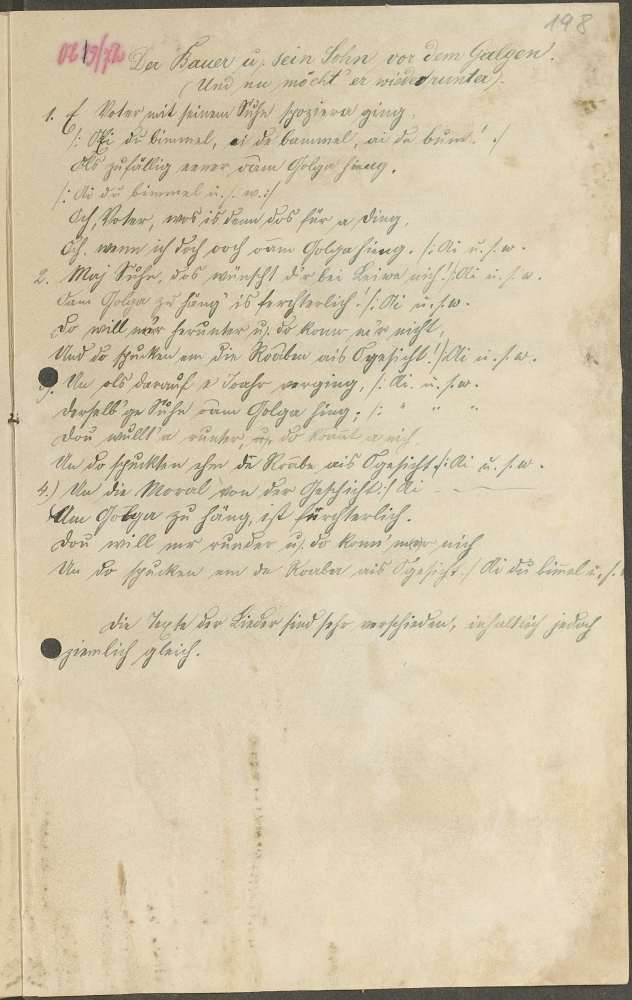 198
06 15/72 Der Bauer u. sein Sohn vor dem Galgen.
(Und nu möcht' er wieder runter).
1. E Voter mit seinem Suhn spaziera ging,
/: Ai du bimmel, ai du bammel, ai du bum! :/
Als zufällig eener oam Golga hieng.
/: Ai du bimmel u. s. w. :/
Och, Voter, wos is denn dos für a Ding,
Och, wenn ich doch ooch oam Golga hieng. /: Ai u. s. w.
2. Maj Suhn, dos wünscht dir bei Leiwe nich! /: Ai u. s. w.
Oam Golga zu häng' is ferchterlich! /: Ai u. s. w.
Do will mer herunter u. do konn mer nicht,
Und do spucken em die Roaben ais Ogesicht! /: Ai u. s. w.
3. Un ols darauf e Joahr verging, /: Ai. u. s. w.
Derselb'ge Suhn oam Golga hing; /: " " "
Dou wullt' a runter, un do konnt a nich
Un do spuckten ehm de Roabe ais Ogesicht /: Ai u. s. w.
4.) Un die Moral von der Geschicht :/ Ai
Am Golga zu häng, ist fürchterlich.
Dou will mr runder u. do konn' mer nich
Un do spucken em de Roaba ais Ogesicht :/ Ai du bimmel u. s.
Die Texte der Lieder sind sehr verschieden, inhaltlich jedoch
ziemlich gleich.